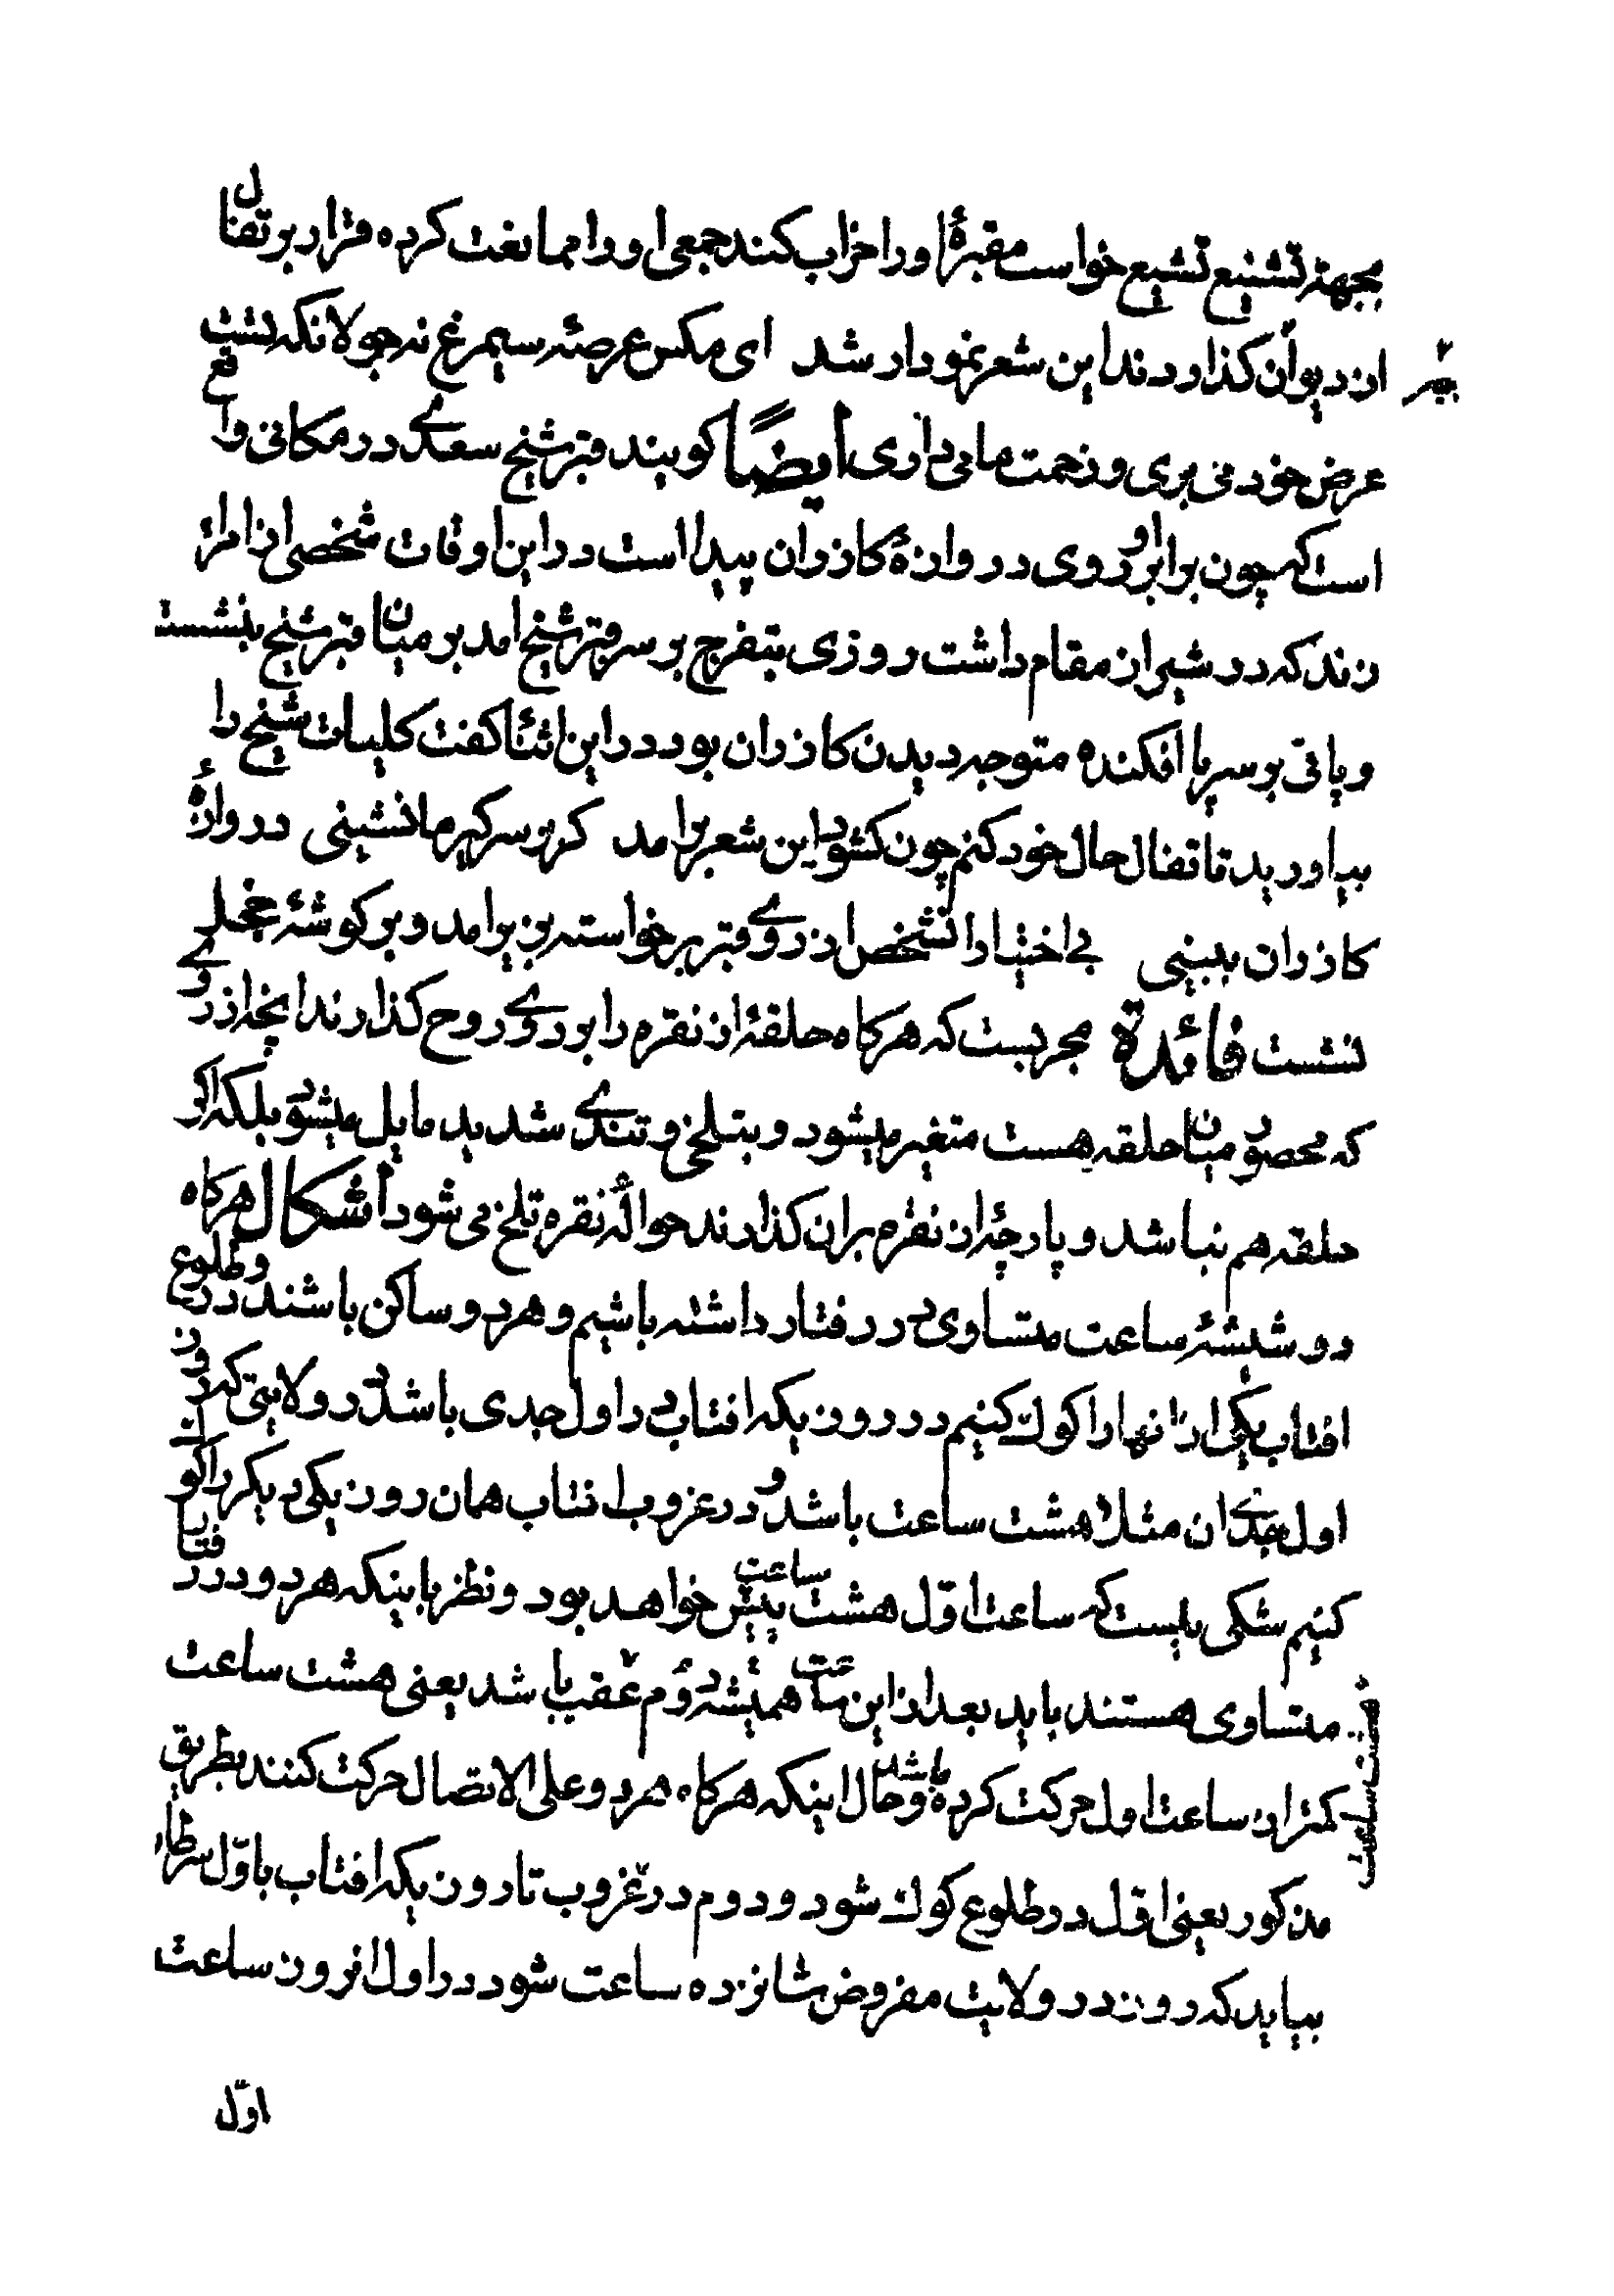 بجهة تشنیع تشیع خواست مقبرهٔ اورا خراب کند جمعی اورا ممانعت کرده قرار بر تفال
از دیوان گذاردند این شعر نمودار شد ای مکس عرصهٔ سیمرغ نه جولانکه تست
عرض خود می بری و زحمت ما می داری ایضاً کویند قبر شیخ سعدے در مکانی واقع
است که چون برابر او روی دروازهٔ کاذران پیدا است در این اوقات شخصی از امراء
زند که در شیراز مقام داشت روزی بتفرج بر سر قبر شیخ امد بر میان قبر شیخ بنشست
و پائی بر سر پا افکنده متوجه دیدن کاذران بود در این اثنا کفت کلیات شیخ را
بیاورید تا تفال حال خود کنم چون کشود این شعر برامد کر بر سر کبر ما نشینی دروازهٔ
کاذران ببینی بے اختیار انشخص از روے قبر برخواسته بزیر امد و بر کوشهٔ خجل
نشست فائدة مجربست که هرکاه حلقهٔ از نقره را بر روے روح کذارند انچه از روے
که محصور میان حلقه هست متغیر میشود و بتلخی و تندے شدید مایل میشود بلکه اکر
حلقه هم نباشد و پارچهٔ از نقره بران کذارند حوالهٔ نقره تلخ می شود اشکال هرکاه
دو شیشهٔ ساعت متساوی در رفتار داشته باشیم و هر دو ساکن باشند در طلوع
افتاب یکی از انها را کوک کنیم در روزیکه افتاب در اول جدی باشد در ولایتی که روز
اول جدے ان مثلا هشت ساعت باشد و در غروب افتاب همان روز یکی دیکر را کوک
کنیم شکی نیست که ساعت اوّل هشت ساعت پیش خواهد بود و نظر باینکه هر دو در رفتار
متساوی هستند باید بعد از این ساعت همیشه دوم عقب باشد یعنی هشت ساعت
کمتر از ساعت اول حرکت کرده باشد و حال اینکه هرکاه هر دو علی الاتصال حرکت کنند بطریق
مذکور یعنی اوّل در طلوع کوک شود و دوم در غروب تا روزیکه افتاب باوّل سرطان
بیاید که روز در ولایت مفروض شانزده ساعت شود در اول انروز ساعت
اوّل